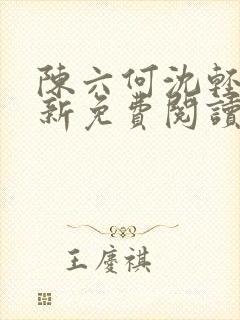 陳六何沈輕
新免費閱讀
王慶祺